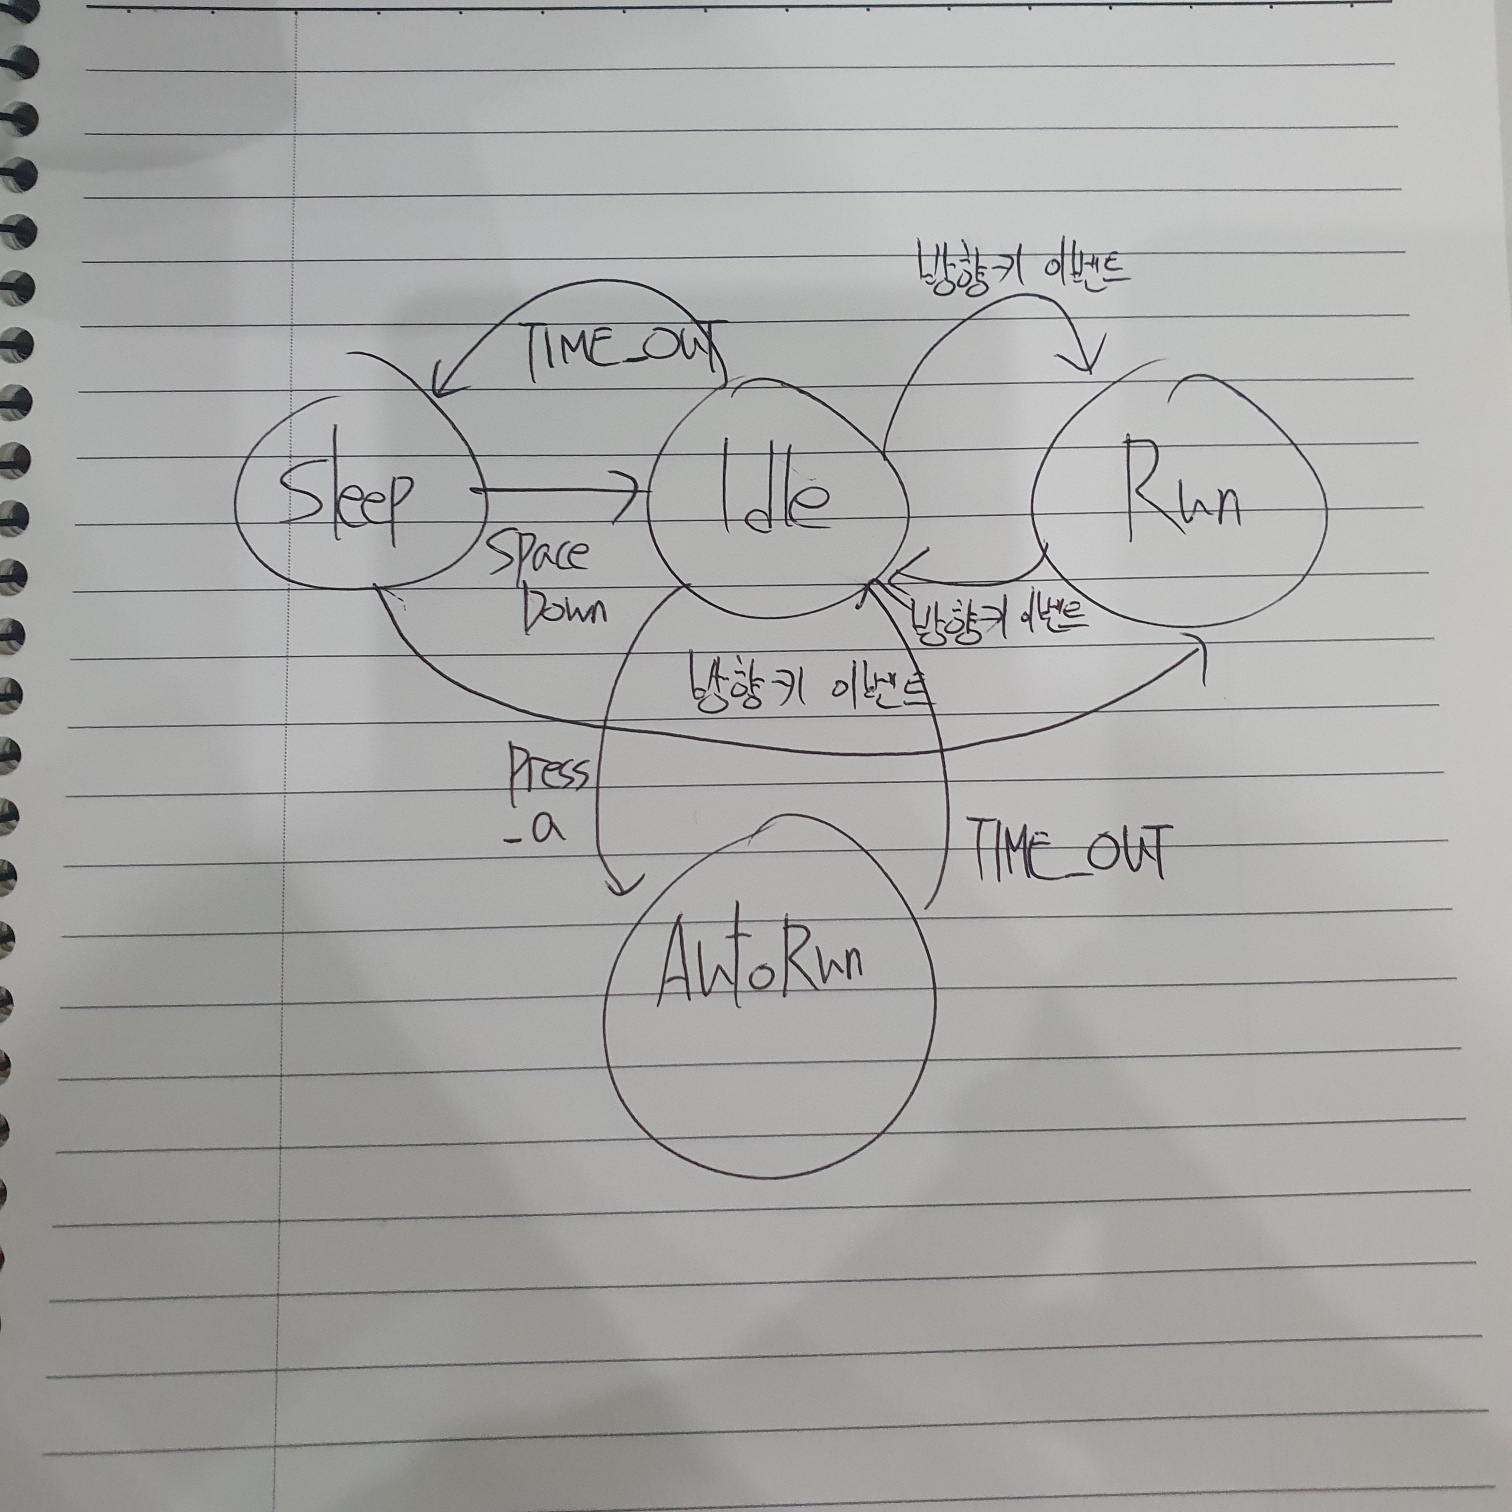 방향키 이벤트
TIME_OUT
Sleep
Idle
Run
Space
Down
방향키 이벤트
방향키 이벤트
Press
_a
TIME_OUT
AutoRun